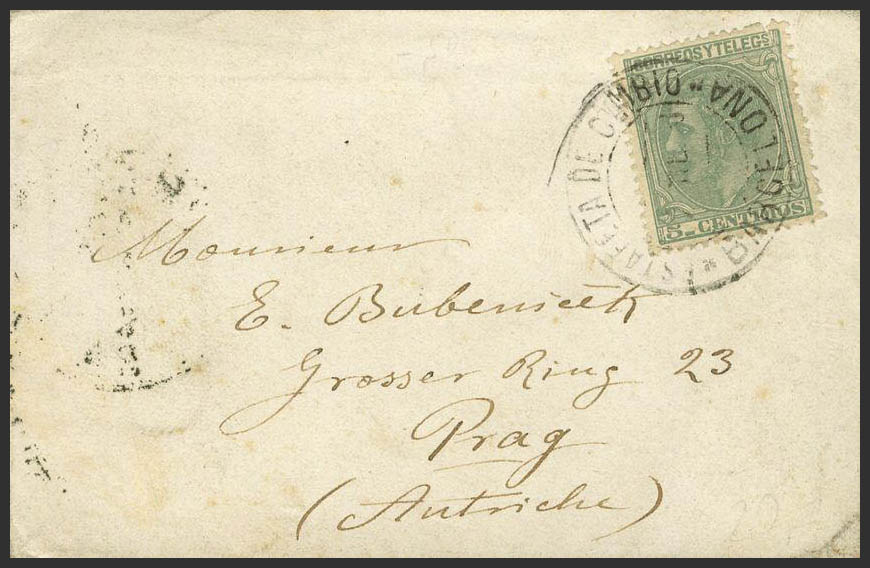 CORREOS Y TELEGS
5- CENTIMOS
ESTAFETA DE CAMBIO
* BARCELONA *
Monsieur
E. Bubeníček
Grosser Ring 23
Prag
(Autriche)